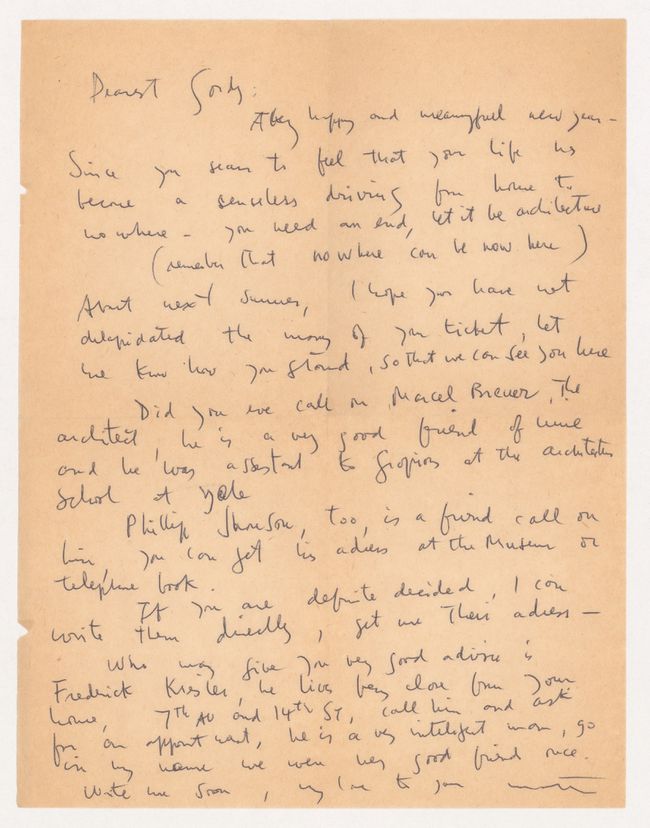 Dearest Gordy:
A very happy and meaningful new year —
Since you seam to feel that your life has
become a senseless driving from home to
nowhere — you need an end, let it be architecture
(remember that nowhere can be now here)
About next summer, I hope you have not
delapidated the money of your ticket, let
me know how you stand, so that we can see you here
Did you ever call on Marcel Breuer, the
architect, he is a very good friend of mine
and he was assestant to Gropious at the architects
School at Yale
Phillip Jhonson, too, is a friend call on
him, you can get his adress at the Museum or
telephone book.
If you are definite decided, I can
write them directly, get me their adress —
Who may give you very good advise is
Frederick Kiesler, he lives very close from your
home, 7th AV and 14th ST, call him and ask
for an appointment, he is a very inteligent man, go
in my name we were very good friend once.
Write me soon, my love to you